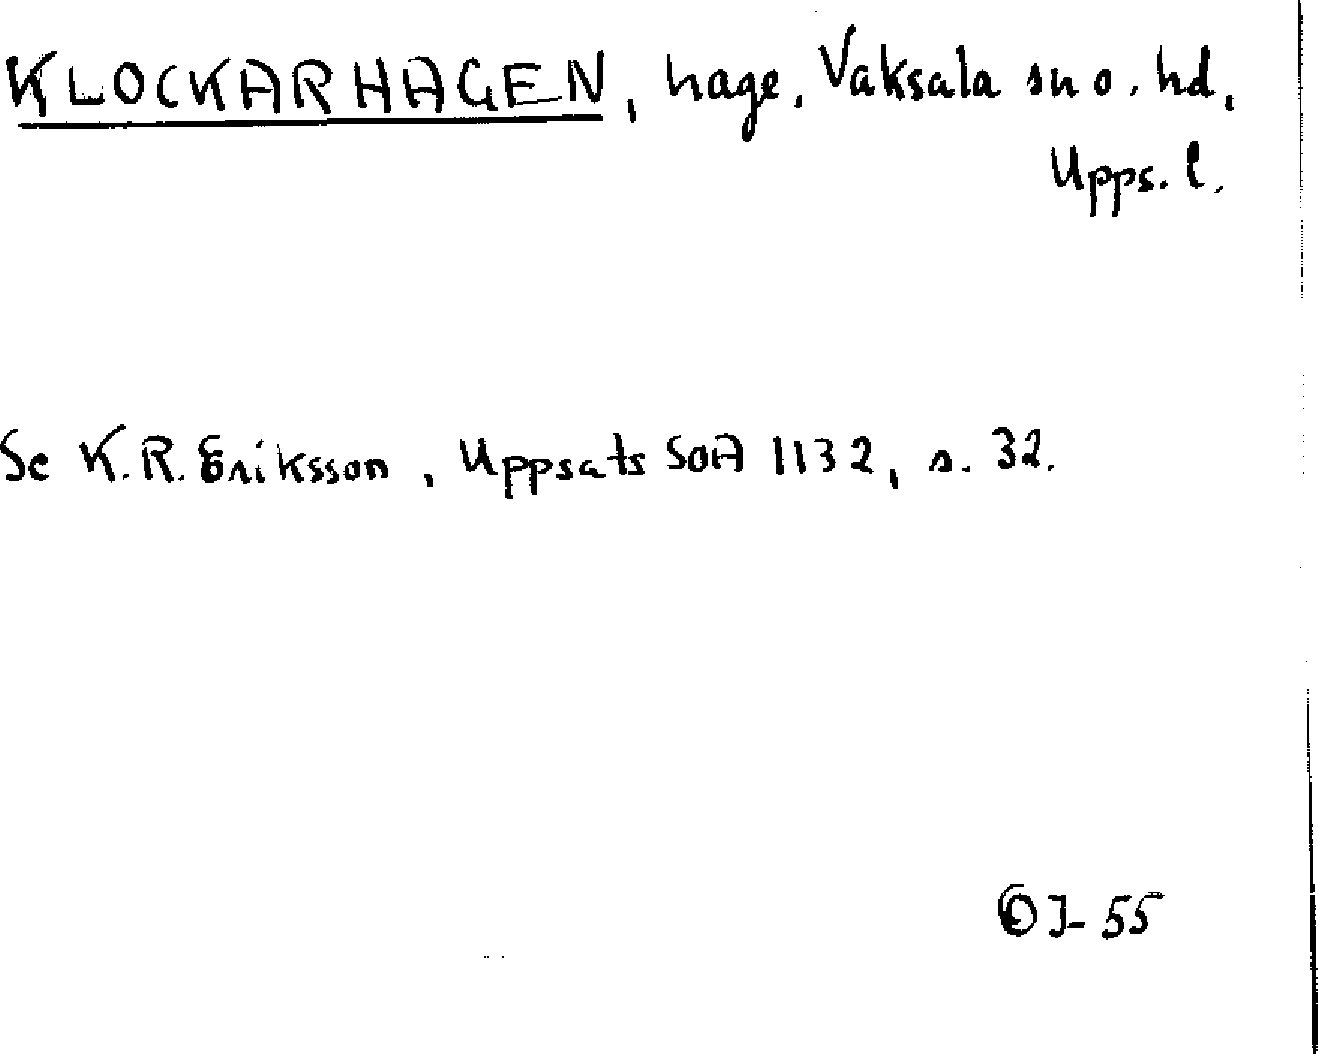 KLOCKARHAGEN, hage, Vaksala sn o. hd,
Upps. l.
Se K.R. Eriksson, Uppsats SOA 1132, s. 32.
55